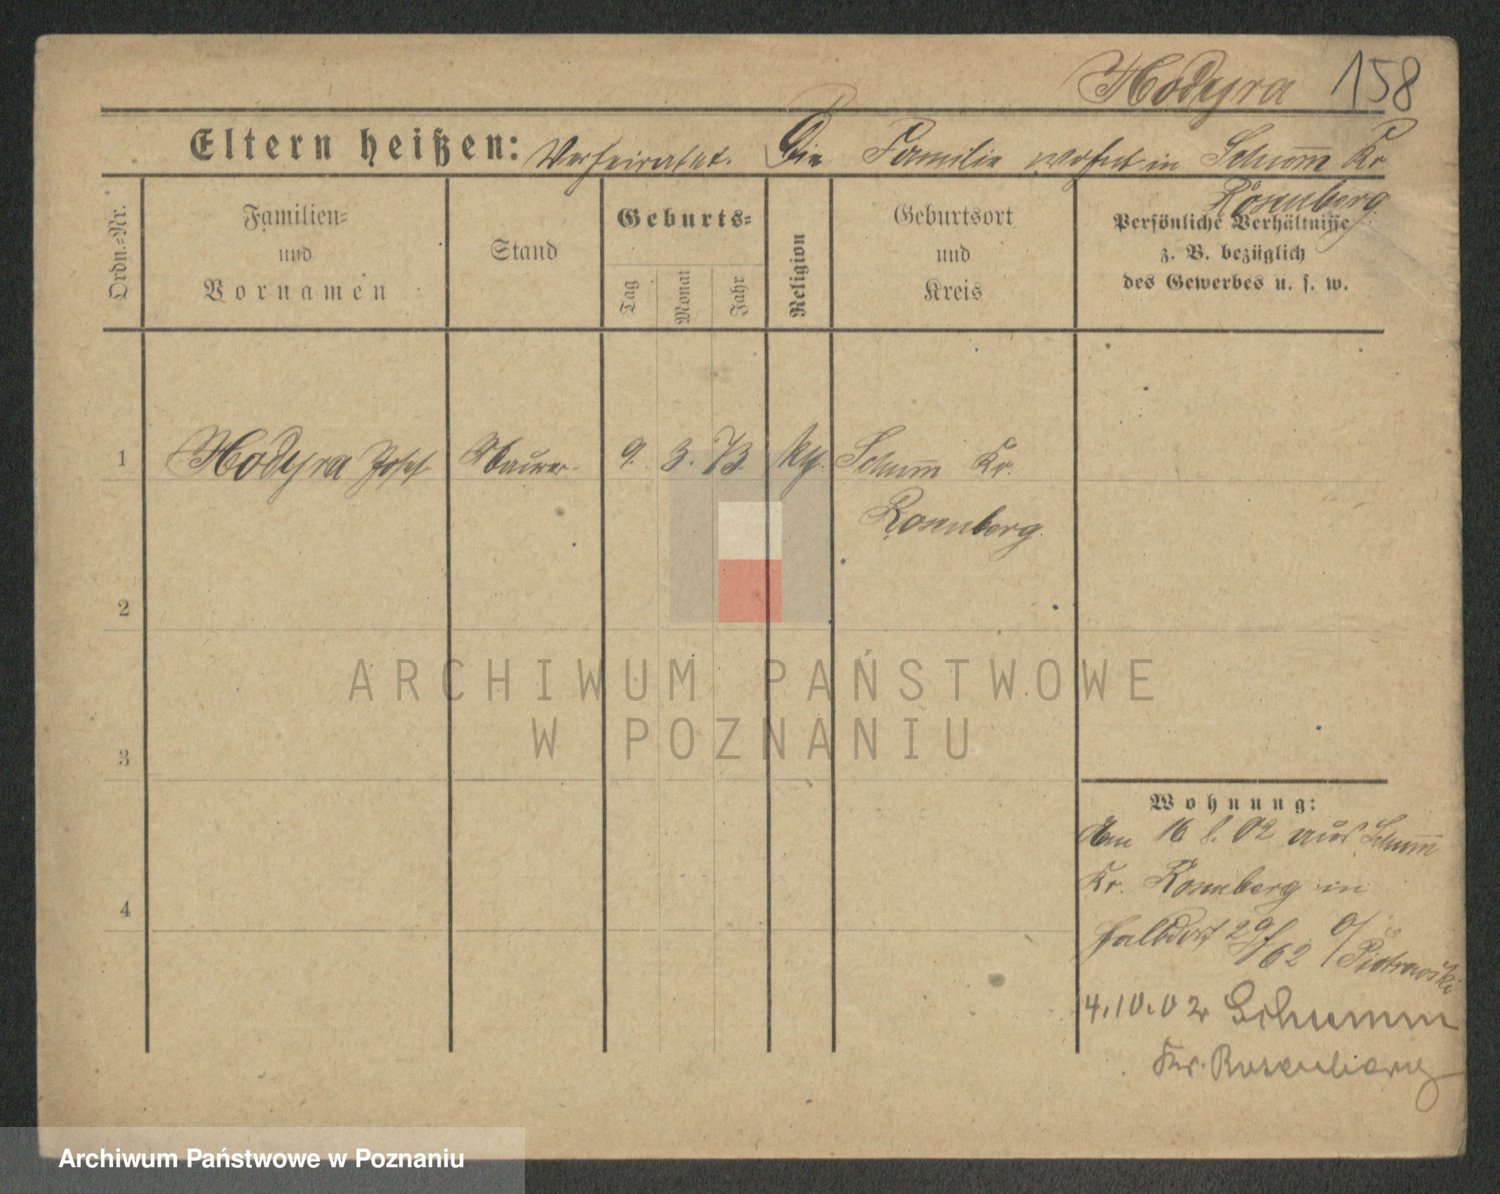 Hodyra 158
Eltern heißen: Verheiratet. Die Familie wohnt in Schumm Kr.
Rosenberg
Ordn.-Nr.
Familien-
und
Vornamen
Stand
Geburts-
Tag
Monat
Jahr
Religion
Geburtsort
und
Kreis
Persönliche Verhältnisse
z. B. bezüglich
des Gewerbes u. s. w.
1 Hodyra Josef Maurer 9. 3. 73. kg. Schumm Kr.
Rosenberg.
2
3
4
ARCHIWUM PAŃSTWOWE
W POZNANIU
Wohnung:
Am 16. 8. 02 aus Schumm
Kr. Rosenberg in
29/62 b/ Piotrowski
4.10.02 Schumm
Kr. Rosenberg
Archiwum Państwowe w Poznaniu